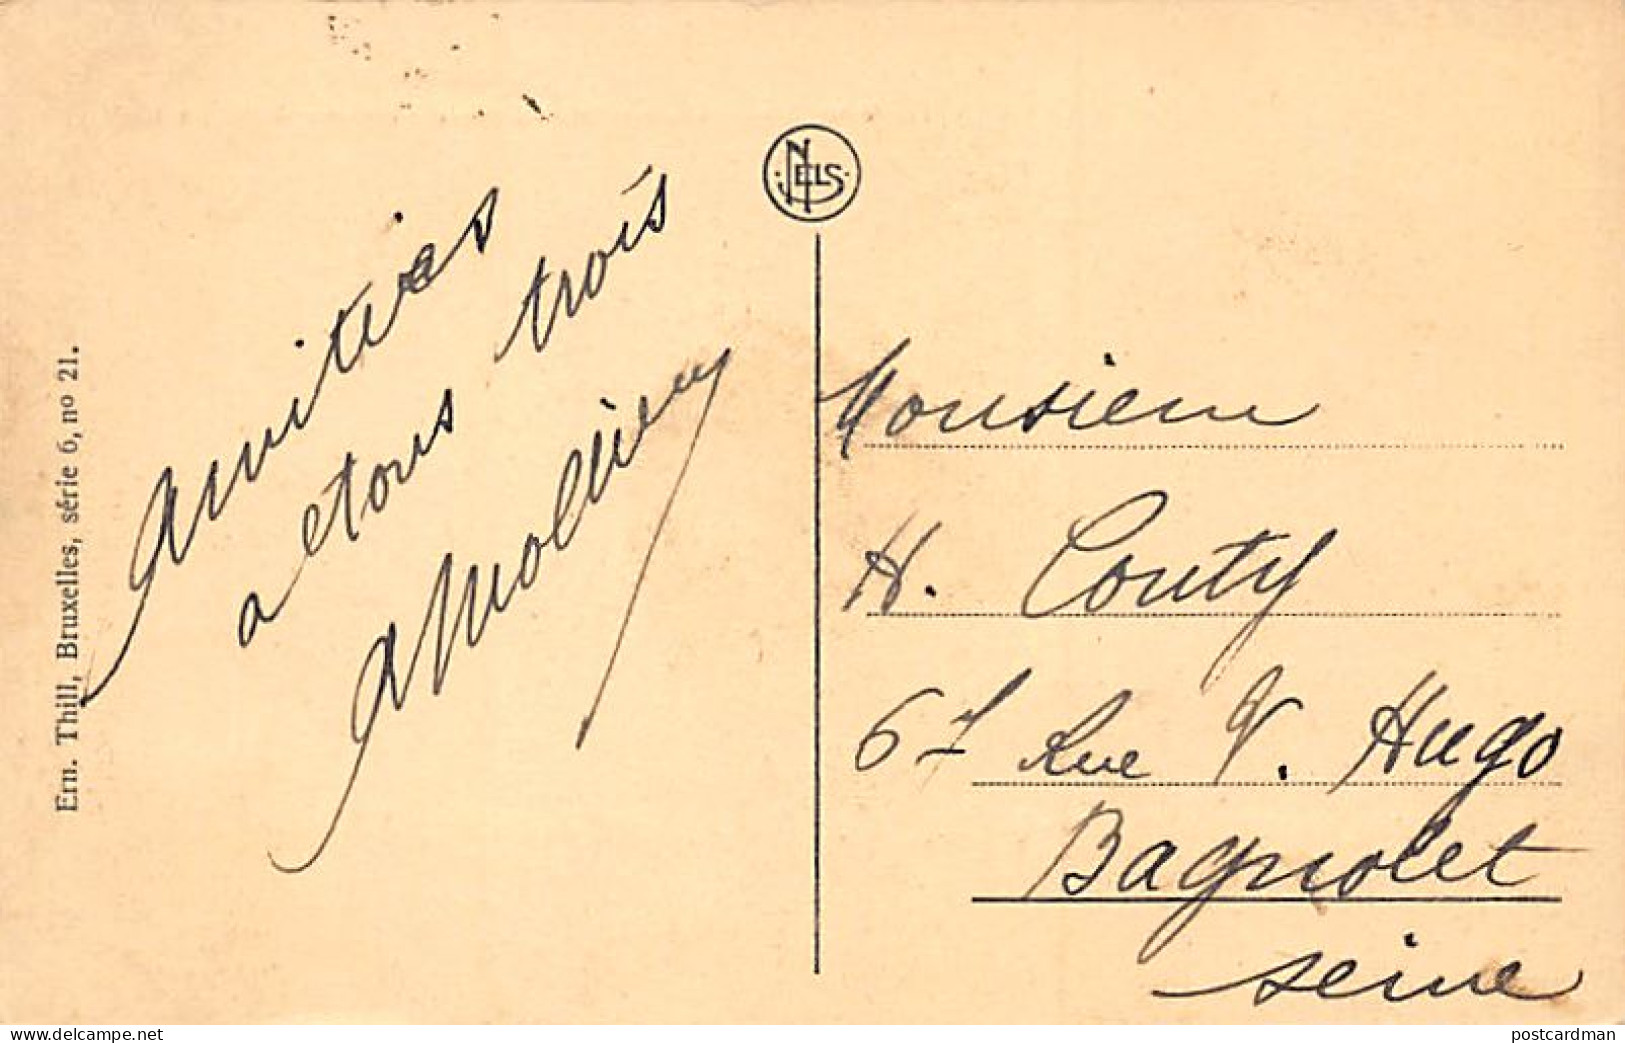 Ern. Thill, Bruxelles, série 6, nº 21.
Amitiés
a etous trois
NELS
Monsieur
H. Couty
61 Rue V. Hugo
Bagnolet
seine
delcampe.net
postcardman